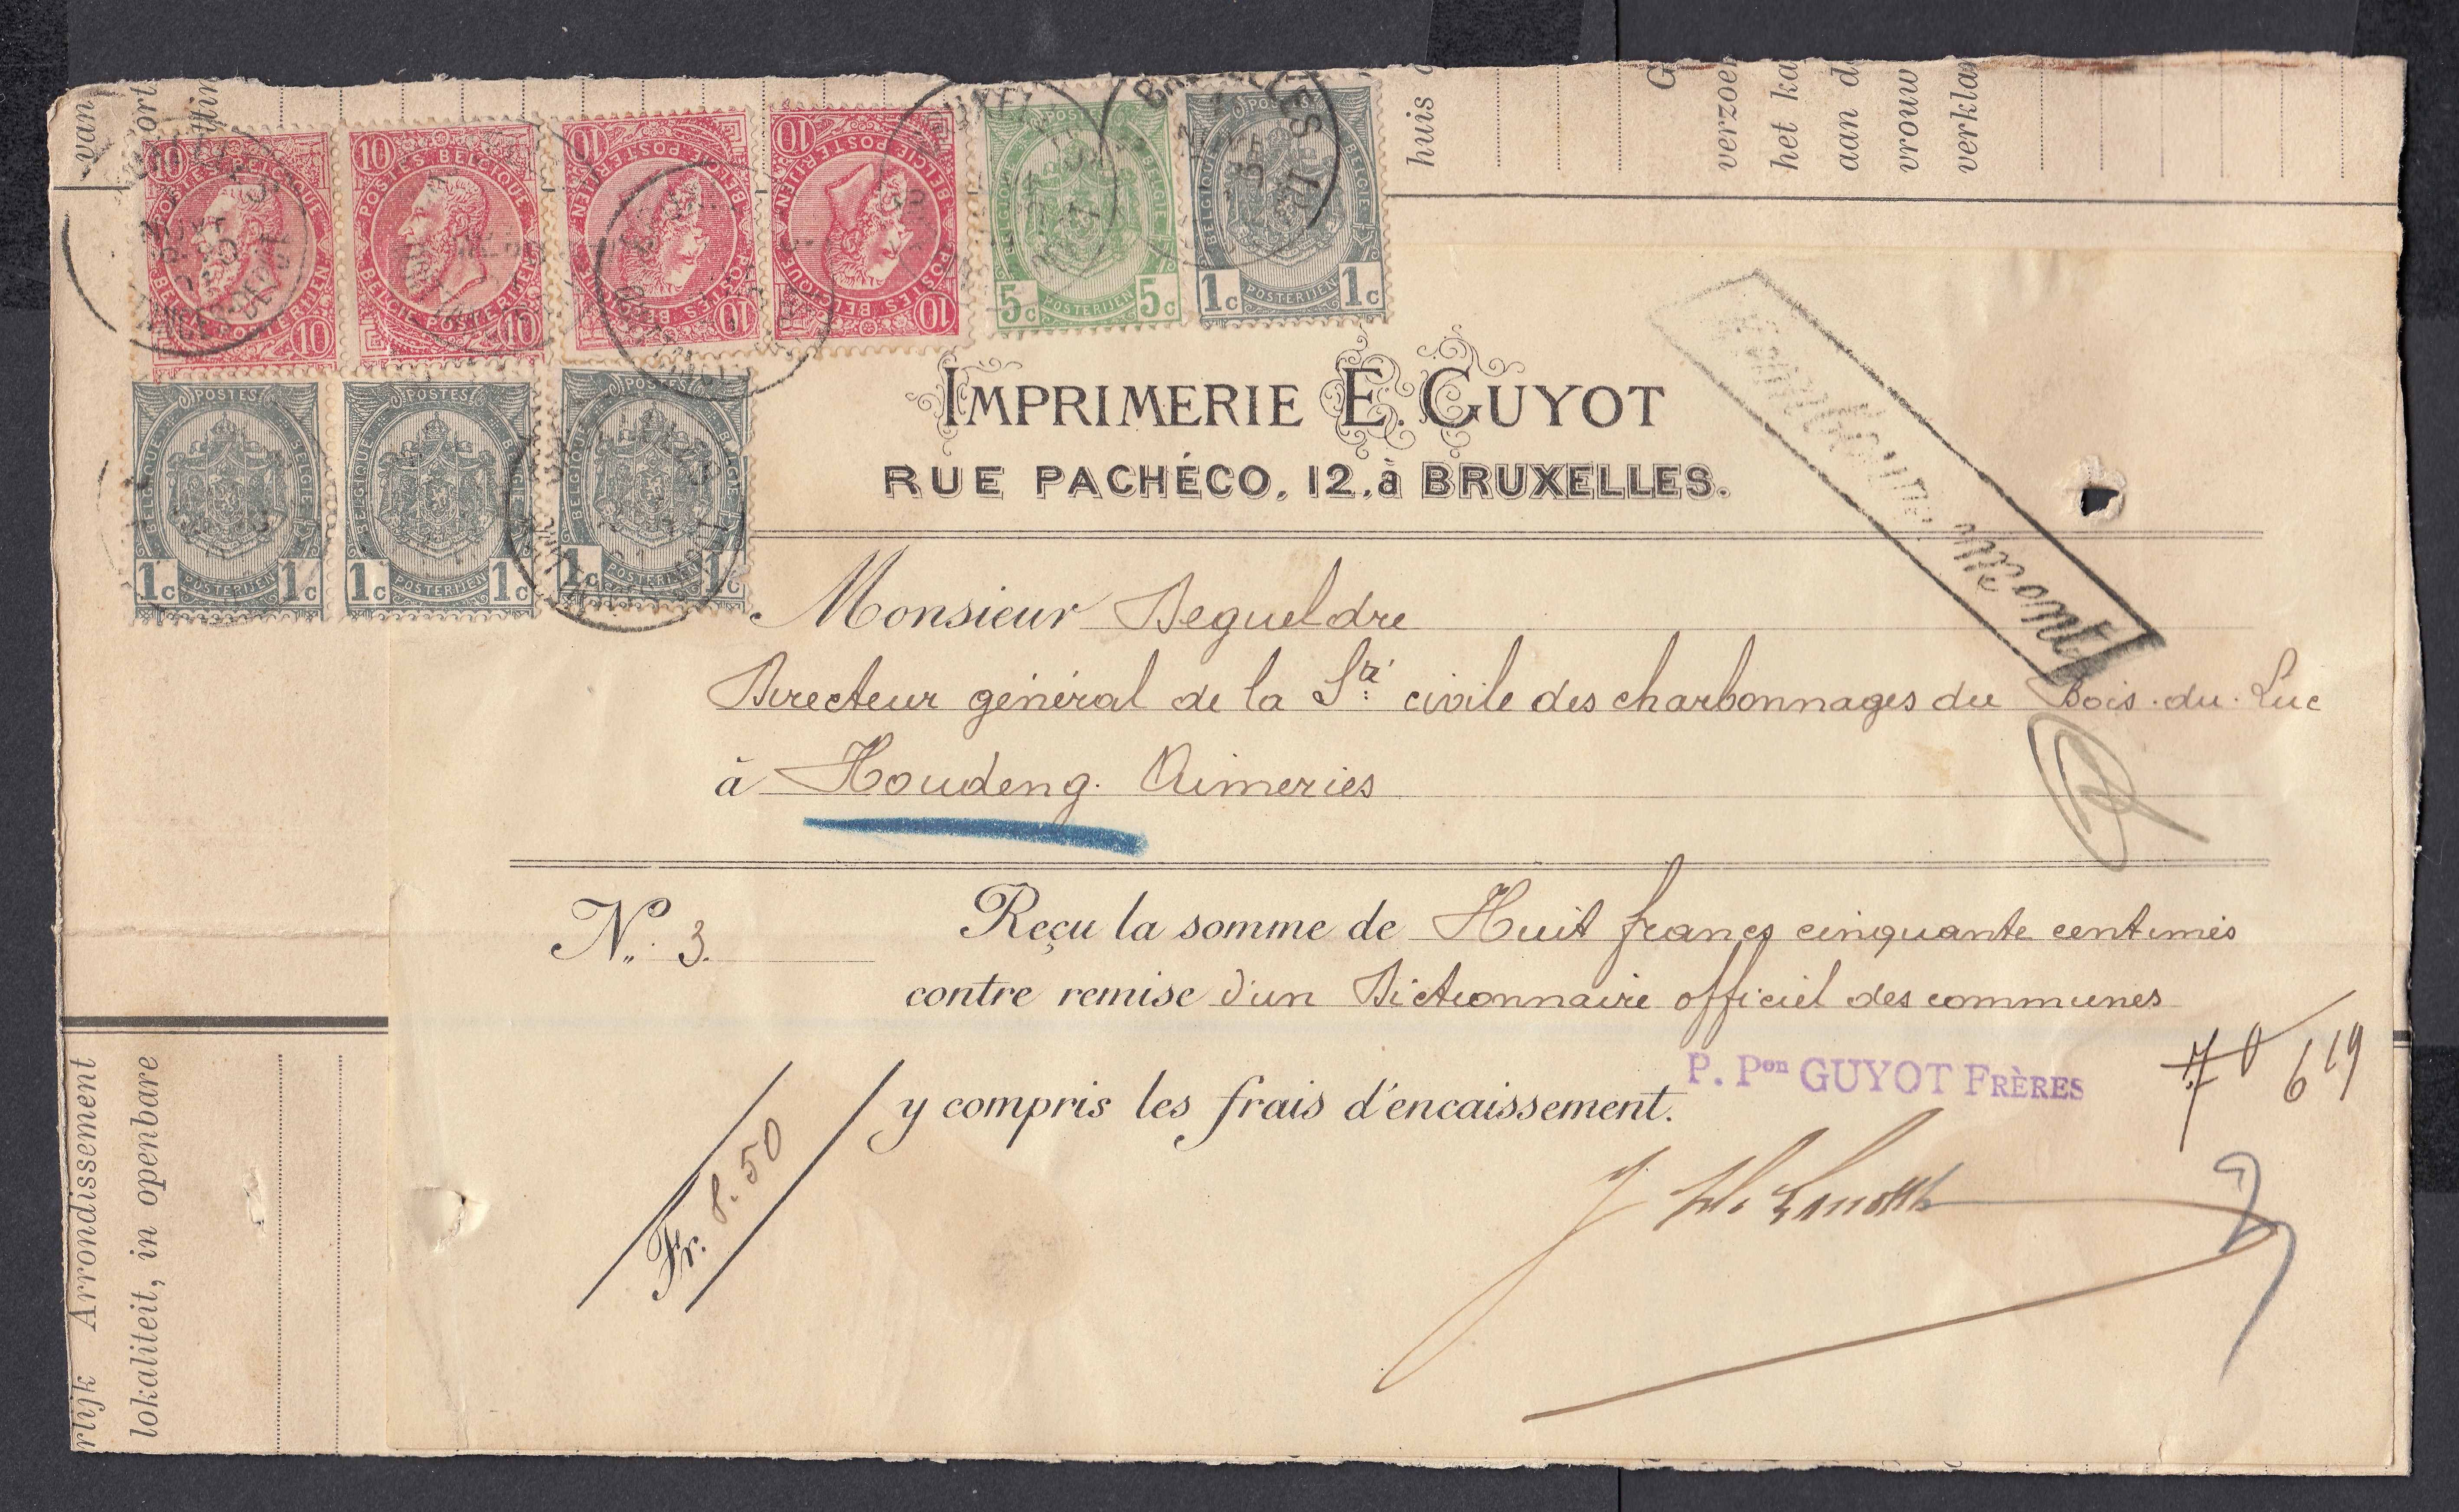 van
huis
verzoe
het ka
aan d
vrouw
verkla
10 10
POSTES BELGIQUE
BELGIE POSTERIJEN
10 10
POSTES BELGIQUE
BELGIE POSTERIJEN
10 10
POSTES BELGIQUE
BELGIE POSTERIJEN
10 10
POSTES BELGIQUE
BELGIE POSTERIJEN
POSTES
BELGIQUE BELGIE
5c POSTERIJEN 5c
POSTES
BELGIQUE BELGIE
1c POSTERIJEN 1c
POSTES
BELGIQUE BELGIE
1c POSTERIJEN 1c
POSTES
BELGIQUE BELGIE
1c POSTERIJEN 1c
POSTES
BELGIQUE BELGIE
1c POSTERIJEN 1c
IMPRIMERIE E. GUYOT
RUE PACHÉCO, 12, à BRUXELLES.
Monsieur Degueldre
Directeur général de la Sté civile des charbonnages du Bois-du-Luc
à Houdeng-Aimeries
No. 3. Reçu la somme de Huit francs cinquante centimes
contre remise d'un Dictionnaire officiel des communes
y compris les frais d'encaissement.
P. Pon GUYOT FRÈRES
Fr. 8.50
rlijk Arrondissement
lokaliteit, in openbare